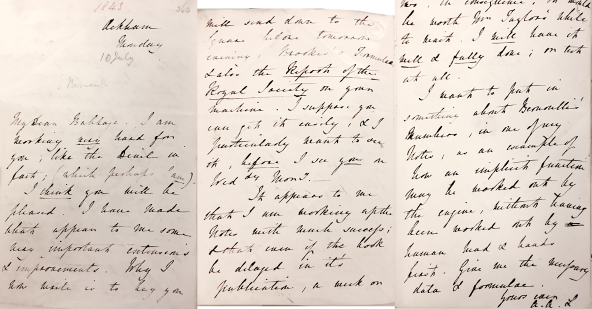 1843
Ockham
Monday
10 July
My Dear Babbage. I am
working very hard for
you; like the Devil in
fact; (which perhaps I am).
I think you will be
pleased. I have made
what appear to me some
very important extensions
& improvements. Why I
now write is to beg you
will send down to the
Square before tomorrow
evening, Brooke's Formulae
& also the Report of the
Royal Society on your
machine. I suppose you
can get it easily, & I
particularly want to see
it, before I see you on
Wedy Morng.
It appears to me
that I am working up the
Notes with much success;
& that even if the book
be delayed in its
publication, a week or
in consequence, it would
be worth Mr Taylor's while
to wait. I will have it
well & fully done; or not
at all.
I want to put in
something about Bernoulli's
Numbers, in one of my
Notes, as an example of
how an implicit function
may be worked out by
the engine, without having
been worked out by
human head & hands
first. Give me the necessary
data & formulae.
Yours ever
A. A. L